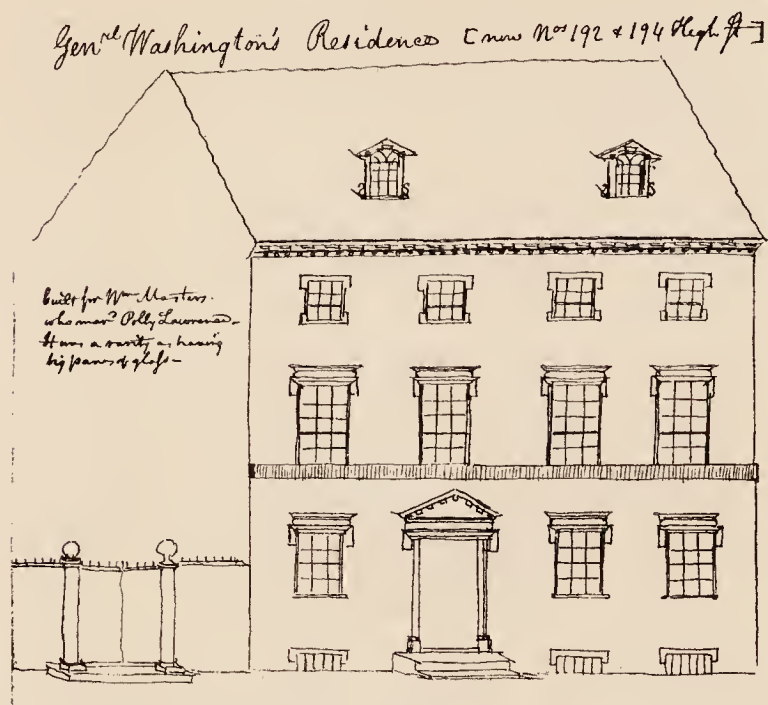 Genrl Washington's Residence [now Nos 192 & 194 High St]
built for Wm Masters.
who mard Polly Lawrence-
It was a rarity as having
big panes of glass-